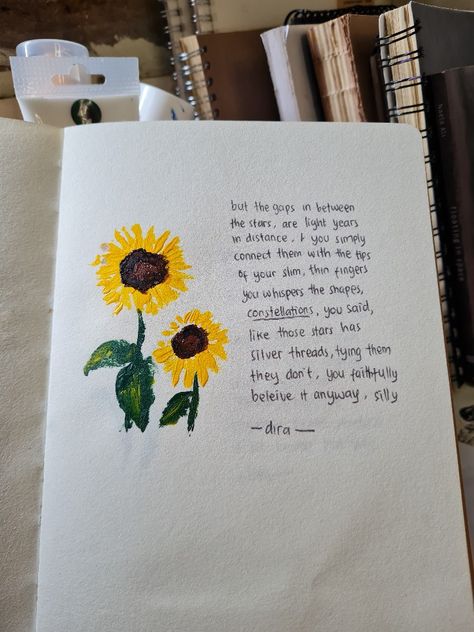 but the gaps in between
the stars, are light years
in distance, & you simply
connect them with the tips
of your slim, thin fingers
you whispers the shapes,
constellations, you said,
like those stars has
silver threads, tying them
they don't, you faithfully
beleive it anyway, silly
—dira—